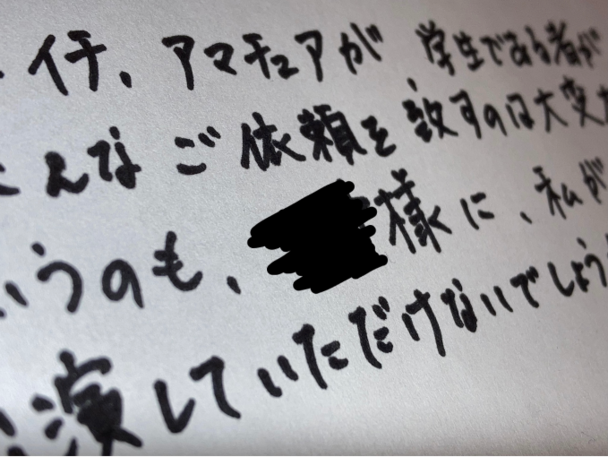 イチ、アマチュアが、学生である者が
こんなご依頼を致すのは大変
いうのも、様に、私が
演していただけないでしょう